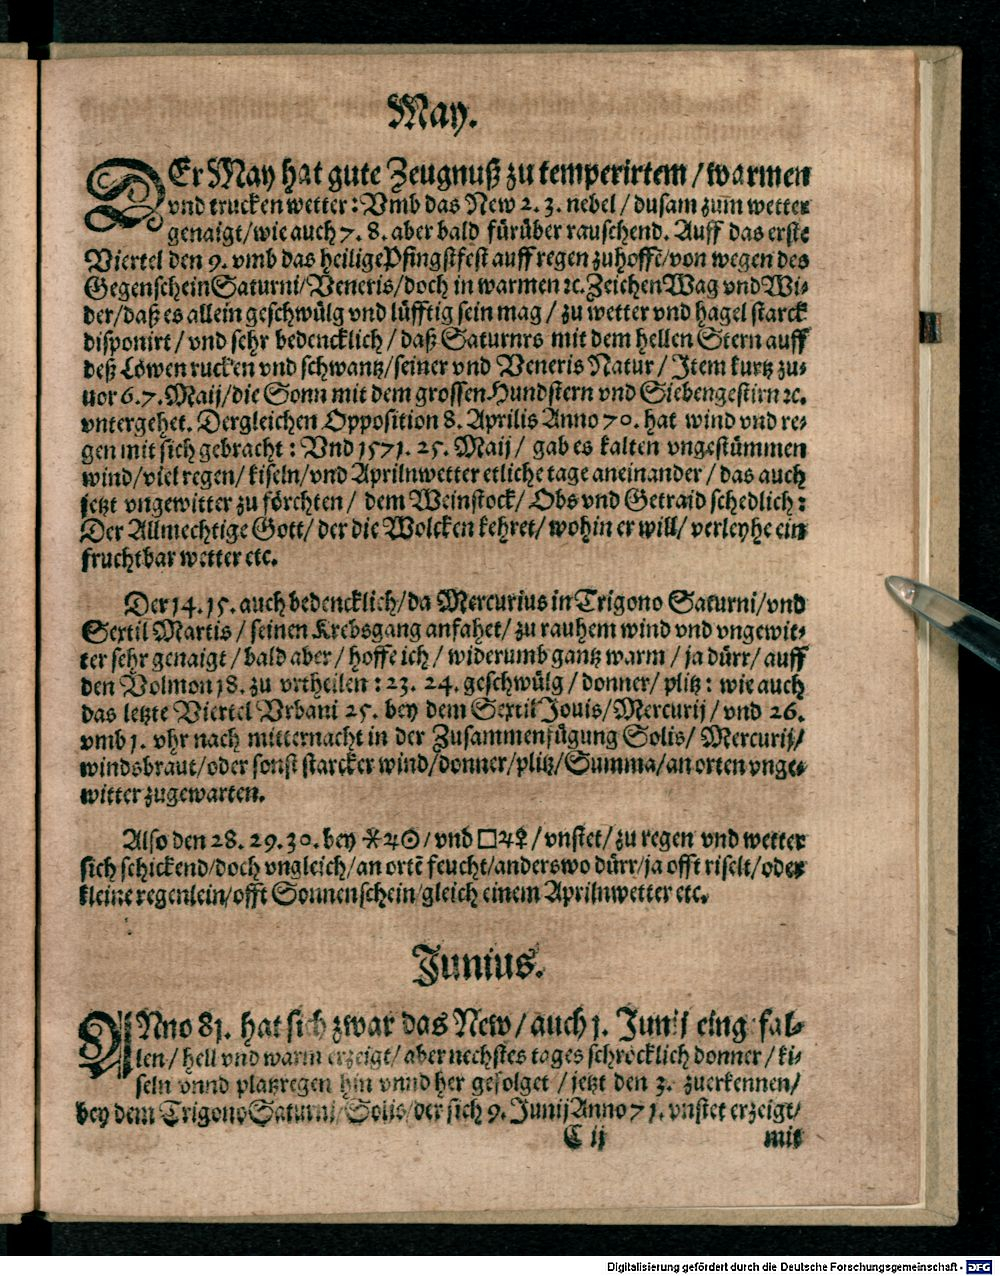 May.
DEr May hat gute Zeugnuß zu temperirtem / warmen
vnd trucken wetter : Vmb das New 2. 3. nebel / dusam zum wetter
genaigt / wie auch 7. 8. aber bald fürüber rauschend. Auff das erste
Viertel den 9. vmb das heilige Pfingstfest auff regen zuhoffẽ / von wegen des
Gegenschein Saturni / Veneris / doch in warmen ꝛc. Zeichen Wag vnd Wi-
der / daß es allein geschwülg vnd lüfftig sein mag / zu wetter vnd hagel starck
disponirt / vnd sehr bedencklich / daß Saturnrs mit dem hellen Stern auff
deß Löwen rucken vnd schwantz / seiner vnd Veneris Natur / Item kurtz zu-
uor 6. 7. Maij / die Sonn mit dem grossen Hundstern vnd Siebengestirn ꝛc.
vntergehet. Dergleichen Opposition 8. Aprilis Anno 70. hat wind vnd re-
gen mit sich gebracht : Vnd 1571. 25. Maij / gab es kalten vngestümmen
wind / viel regen / kiseln / vnd Aprilnwetter etliche tage aneinander / das auch
jetzt vngewitter zu förchten / dem Weinstock / Obs vnd Getraid schedlich :
Der Allmechtige Gott / der die Wolcken kehret / wohin er will / verleyhe ein
fruchtbar wetter etc.
Der 14. 15. auch bedencklich / da Mercurius in Trigono Saturni / vnd
Sextil Martis / seinen Krebsgang anfahet / zu rauhem wind vnd vngewit-
ter sehr genaigt / bald aber / hoffe ich / widerumb gantz warm / ja dürr / auff
den Volmon 18. zu vrtheilen : 23. 24. geschwülg / donner / plitz : wie auch
das letzte Viertel Vrbani 25. bey dem Sextil Jouis / Mercurij / vnd 26.
vmb 1. vhr nach mitternacht in der Zusammenfügung Solis / Mercurij /
windsbraut / oder sonst starcker wind / donner / plitz / Summa / an orten vnge-
witter zugewarten.
Also den 28. 29. 30. bey ⚹♃☉ / vnd □♃☿ / vnstet / zu regen vnd wetter
sich schickend / doch vngleich / an ortẽ feucht / anderswo dürr / ja offt riselt / oder
kleine regenlein / offt Sonnenschein / gleich einem Aprilnwetter etc.
Junius.
ANno 81. hat sich zwar das New / auch 1. Junij eingefal-
len / hell vnd warm erzeigt / aber nechstes tages schröcklich donner / ki-
seln vnnd platzregen hin vnnd her gefolget / jetzt den 3. zuerkennen /
bey dem Trigono Saturni / Solis / der sich 9. Junij Anno 71. vnstet erzeigt /
C ij
mit
Digitalisierung gefördert durch die Deutsche Forschungsgemeinschaft - DFG